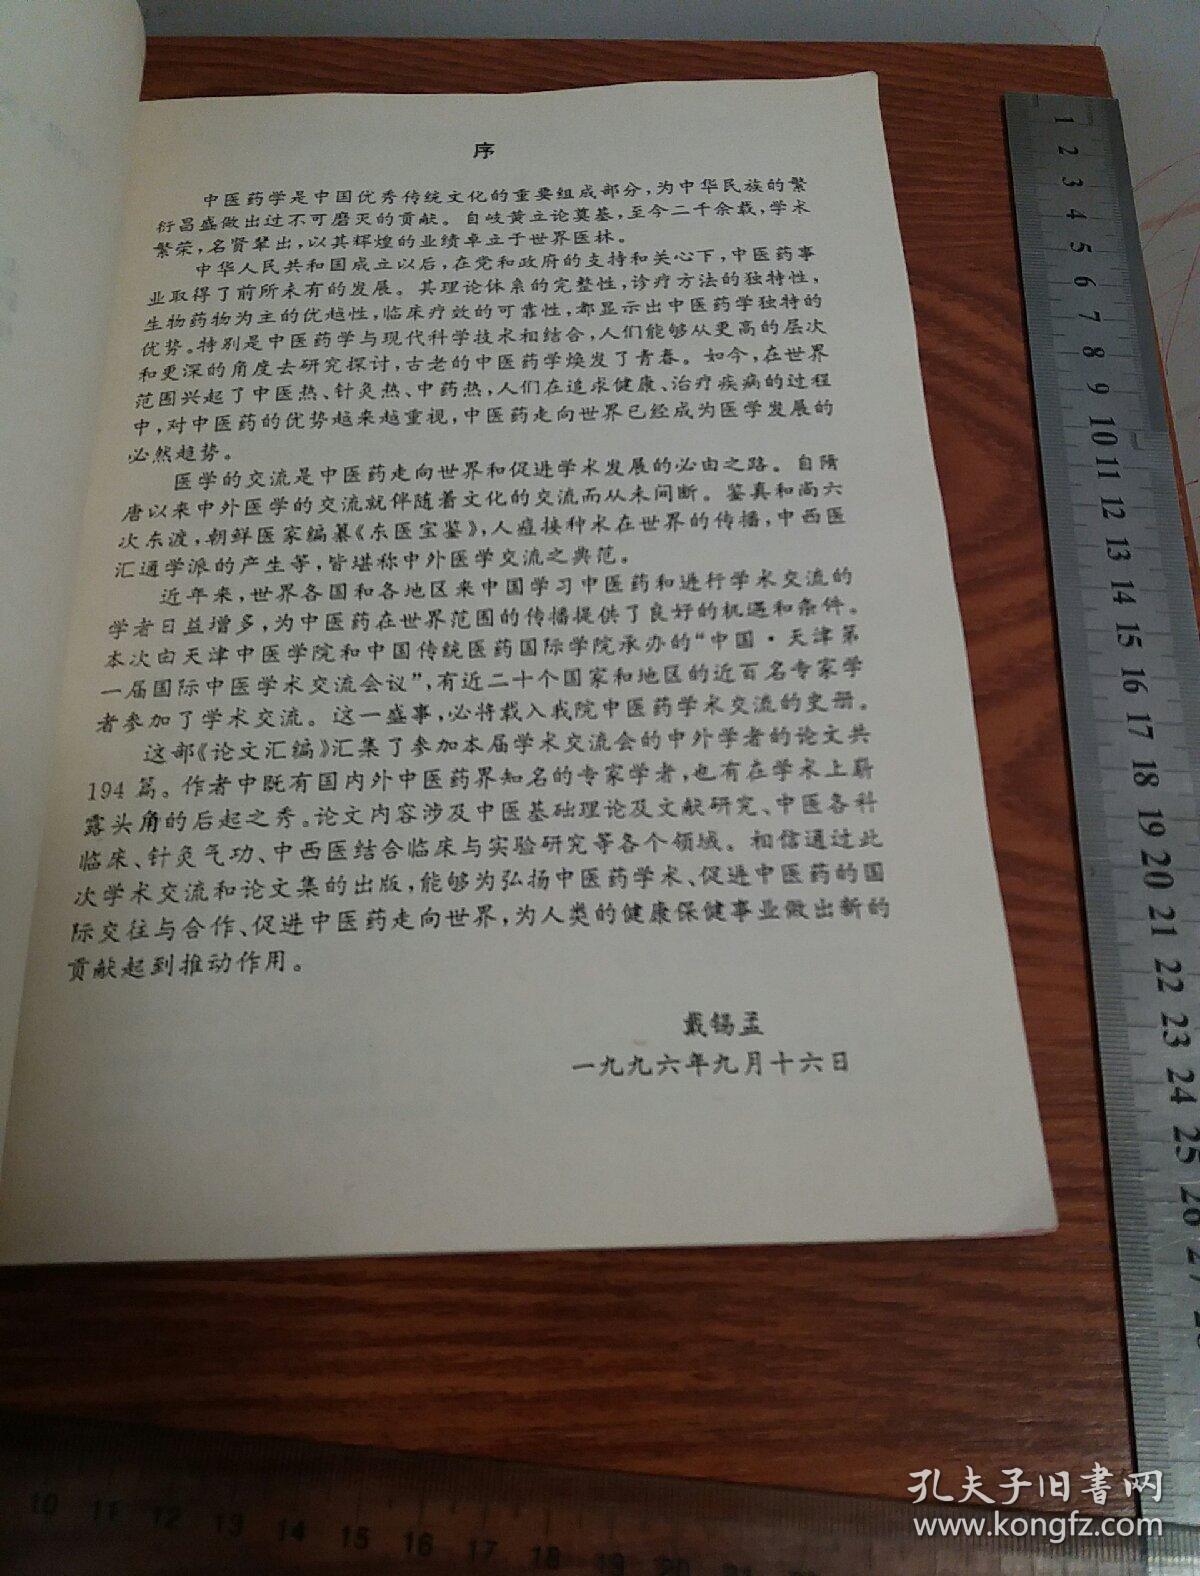 序
中医药学是中国优秀传统文化的重要组成部分，为中华民族的繁
衍昌盛做出过不可磨灭的贡献。自岐黄立论奠基，至今二千余载，学术
繁荣，名贤辈出，以其辉煌的业绩卓立于世界医林。
中华人民共和国成立以后，在党和政府的支持和关心下，中医药事
业取得了前所未有的发展。其理论体系的完整性，诊疗方法的独特性，
生物药物为主的优越性，临床疗效的可靠性，都显示出中医药学独特的
优势。特别是中医药学与现代科学技术相结合，人们能够从更高的层次
和更深的角度去研究探讨，古老的中医药学焕发了青春。如今，在世界
范围兴起了中医热、针灸热、中药热，人们在追求健康、治疗疾病的过程
中，对中医药的优势越来越重视，中医药走向世界已经成为医学发展的
必然趋势。
医学的交流是中医药走向世界和促进学术发展的必由之路。自隋
唐以来中外医学的交流就伴随着文化的交流而从未间断。鉴真和尚六
次东渡，朝鲜医家编纂《东医宝鉴》，人痘接种术在世界的传播，中西医
汇通学派的产生等，皆堪称中外医学交流之典范。
近年来，世界各国和各地区来中国学习中医药和进行学术交流的
学者日益增多，为中医药在世界范围的传播提供了良好的机遇和条件。
本次由天津中医学院和中国传统医药国际学院承办的“中国·天津第
一届国际中医学术交流会议”，有近二十个国家和地区的近百名专家学
者参加了学术交流。这一盛事，必将载入我院中医药学术交流的史册。
这部《论文汇编》汇集了参加本届学术交流会的中外学者的论文共
194篇。作者中既有国内外中医药界知名的专家学者，也有在学术上崭
露头角的后起之秀。论文内容涉及中医基础理论及文献研究、中医各科
临床、针灸气功、中西医结合临床与实验研究等各个领域。相信通过此
次学术交流和论文集的出版，能够为弘扬中医药学术、促进中医药的国
际交往与合作、促进中医药走向世界，为人类的健康保健事业做出新的
贡献起到推动作用。
戴锡孟
一九九六年九月十六日
1
2
3
4
5
6
7
8
9
10
11
12
13
14
15
16
17
18
19
20
21
22
23
24
25
26
27
10 11 12 13 14 15 16 17 18 19 20 21
孔夫子旧书网
www.kongfz.com